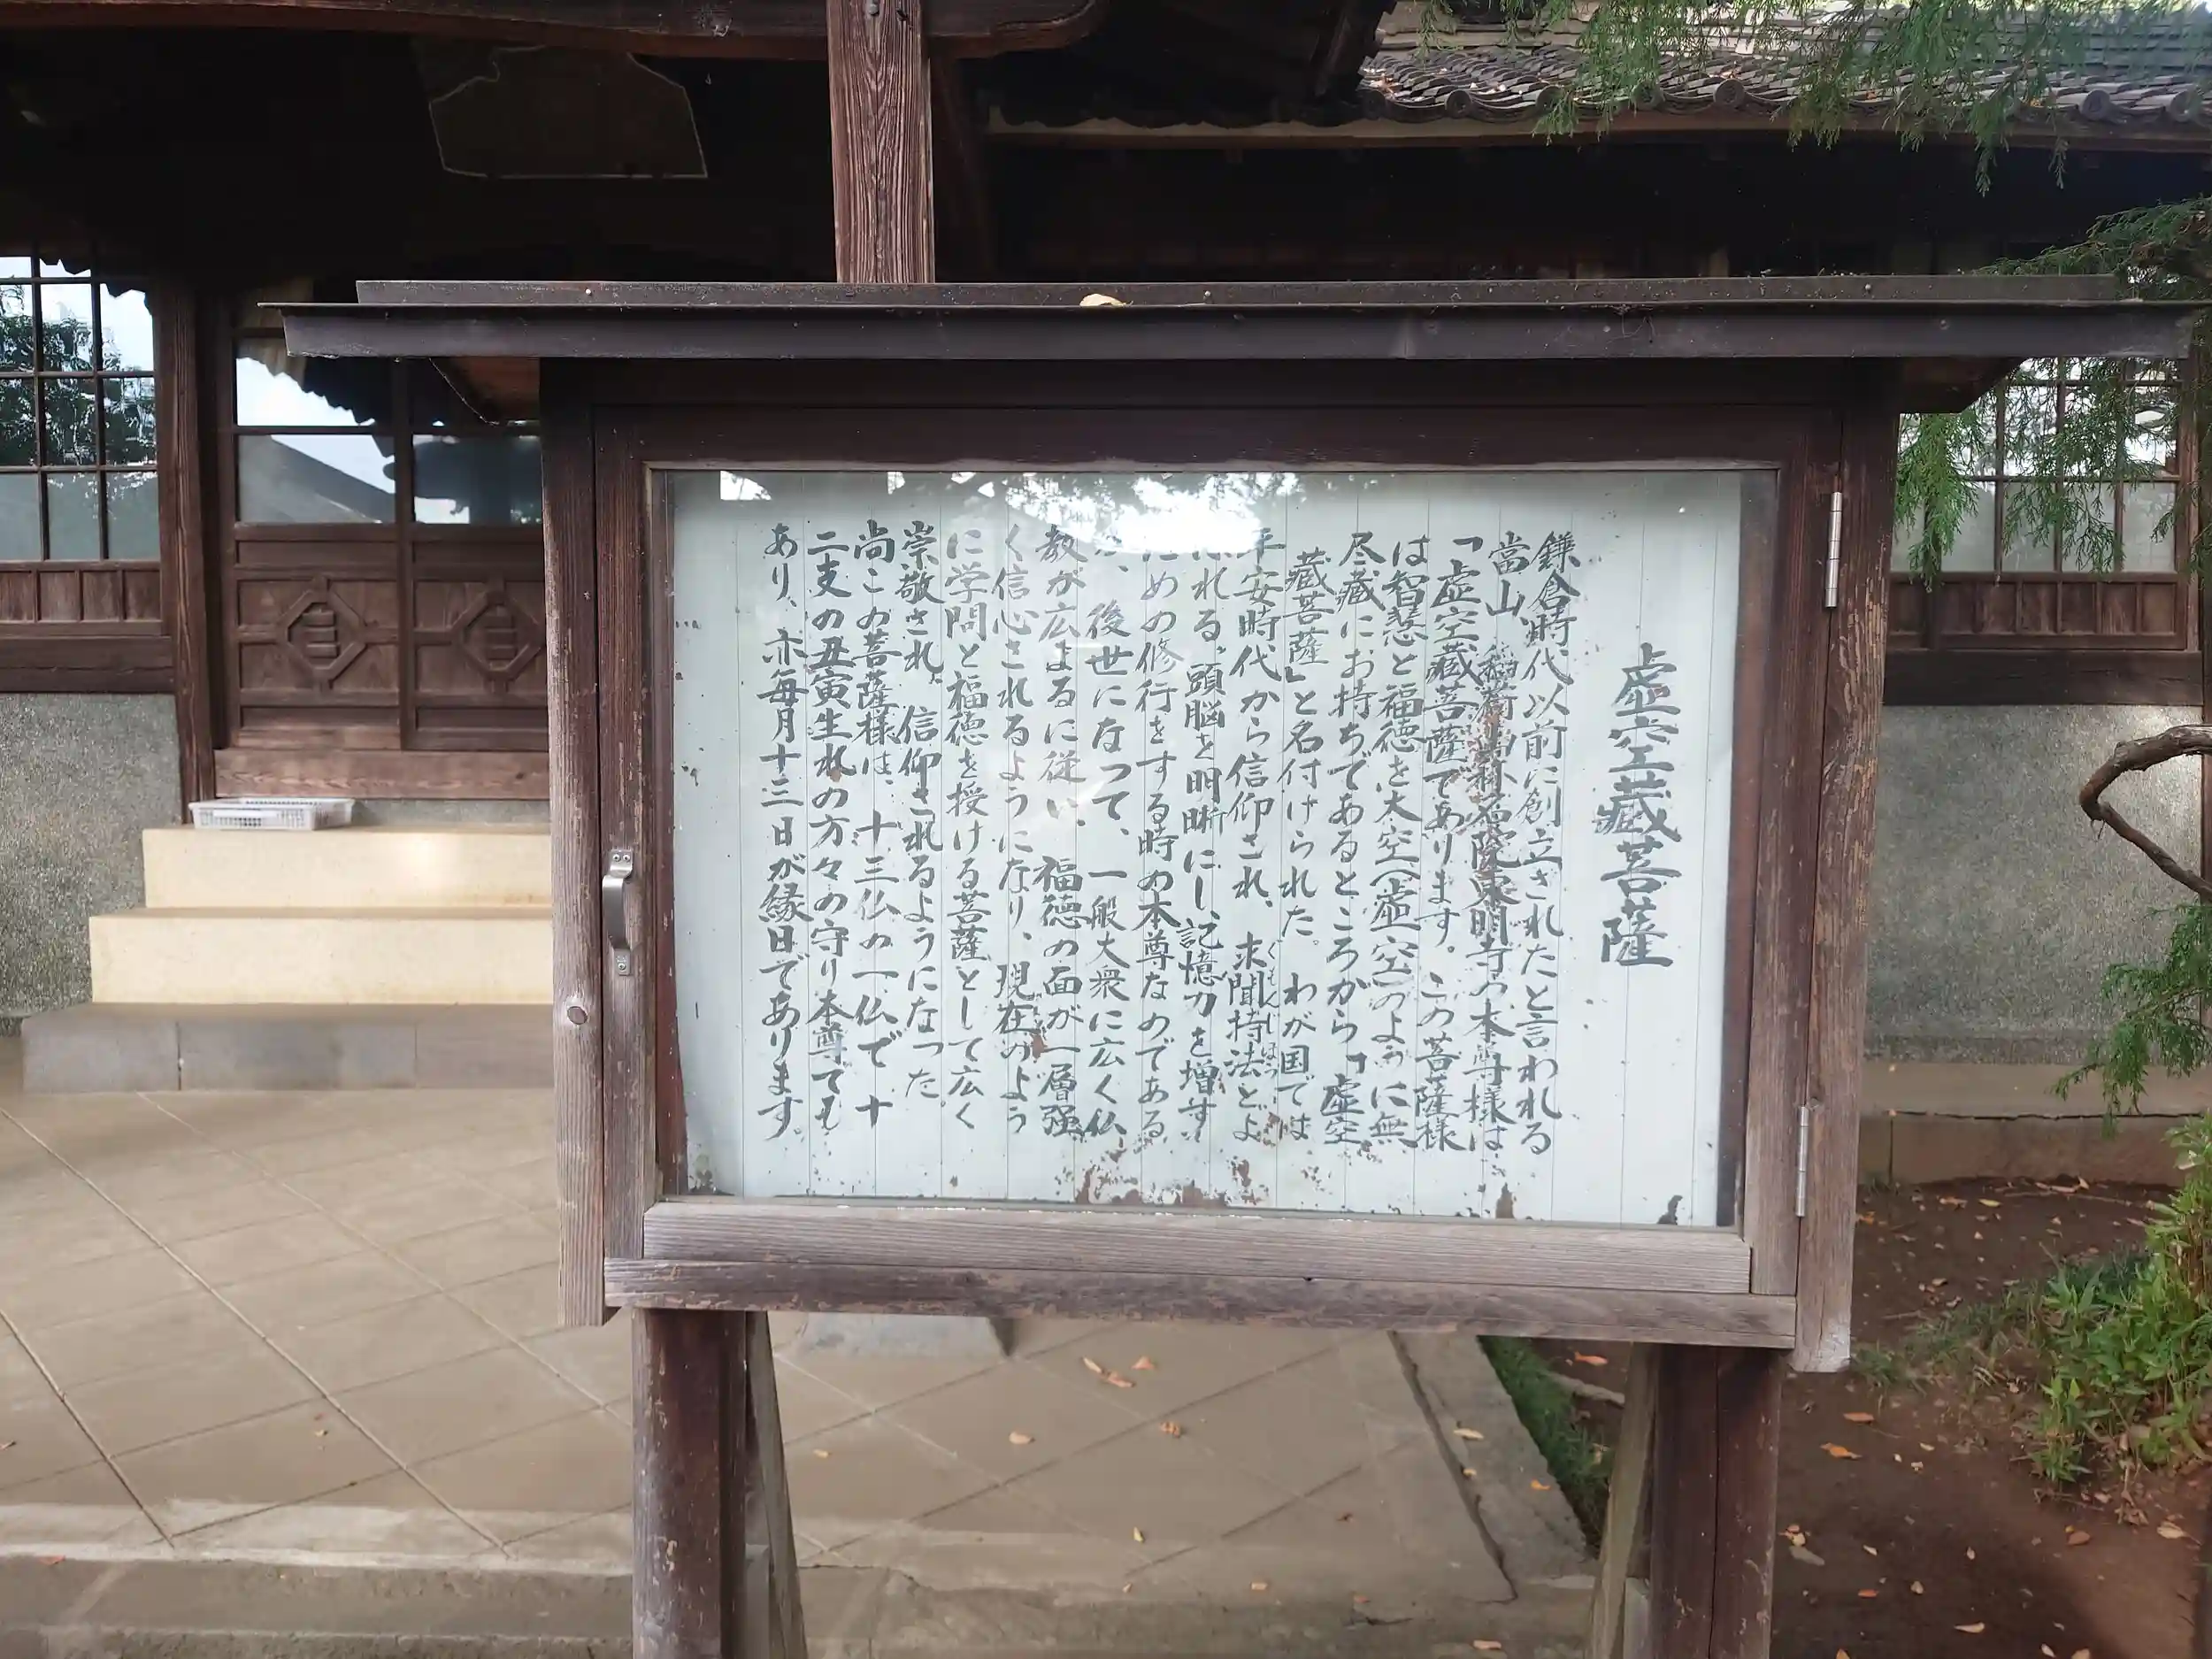 虚空藏菩薩
鎌倉時代以前に創立されたと言われる
當山、稲荷山称名院東明寺の本尊様は
「虚空藏菩薩であります。この菩薩様
は智慧と福徳を太空(虚空)のように無
尽藏にお持ちであるところから「虚空
藏菩薩」と名付けられた。わが国では
平安時代から信仰され、求聞持法とよ
くもんじほう
れる。頭脳を明晰にし、記憶力を増す
ための修行をする時の本尊なのである
、後世になって、一般大衆に広く仏
教が広まるに従い、福徳の面が一層強
く信心されるようになり、現在のよう
に学問と福徳を授ける菩薩として広く
崇敬され、信仰されるようになった。
尚この菩薩様は、十三仏の一仏で、十
二支の丑寅生れの方々の守り本尊でも
あり、亦毎月十三日が縁日であります。